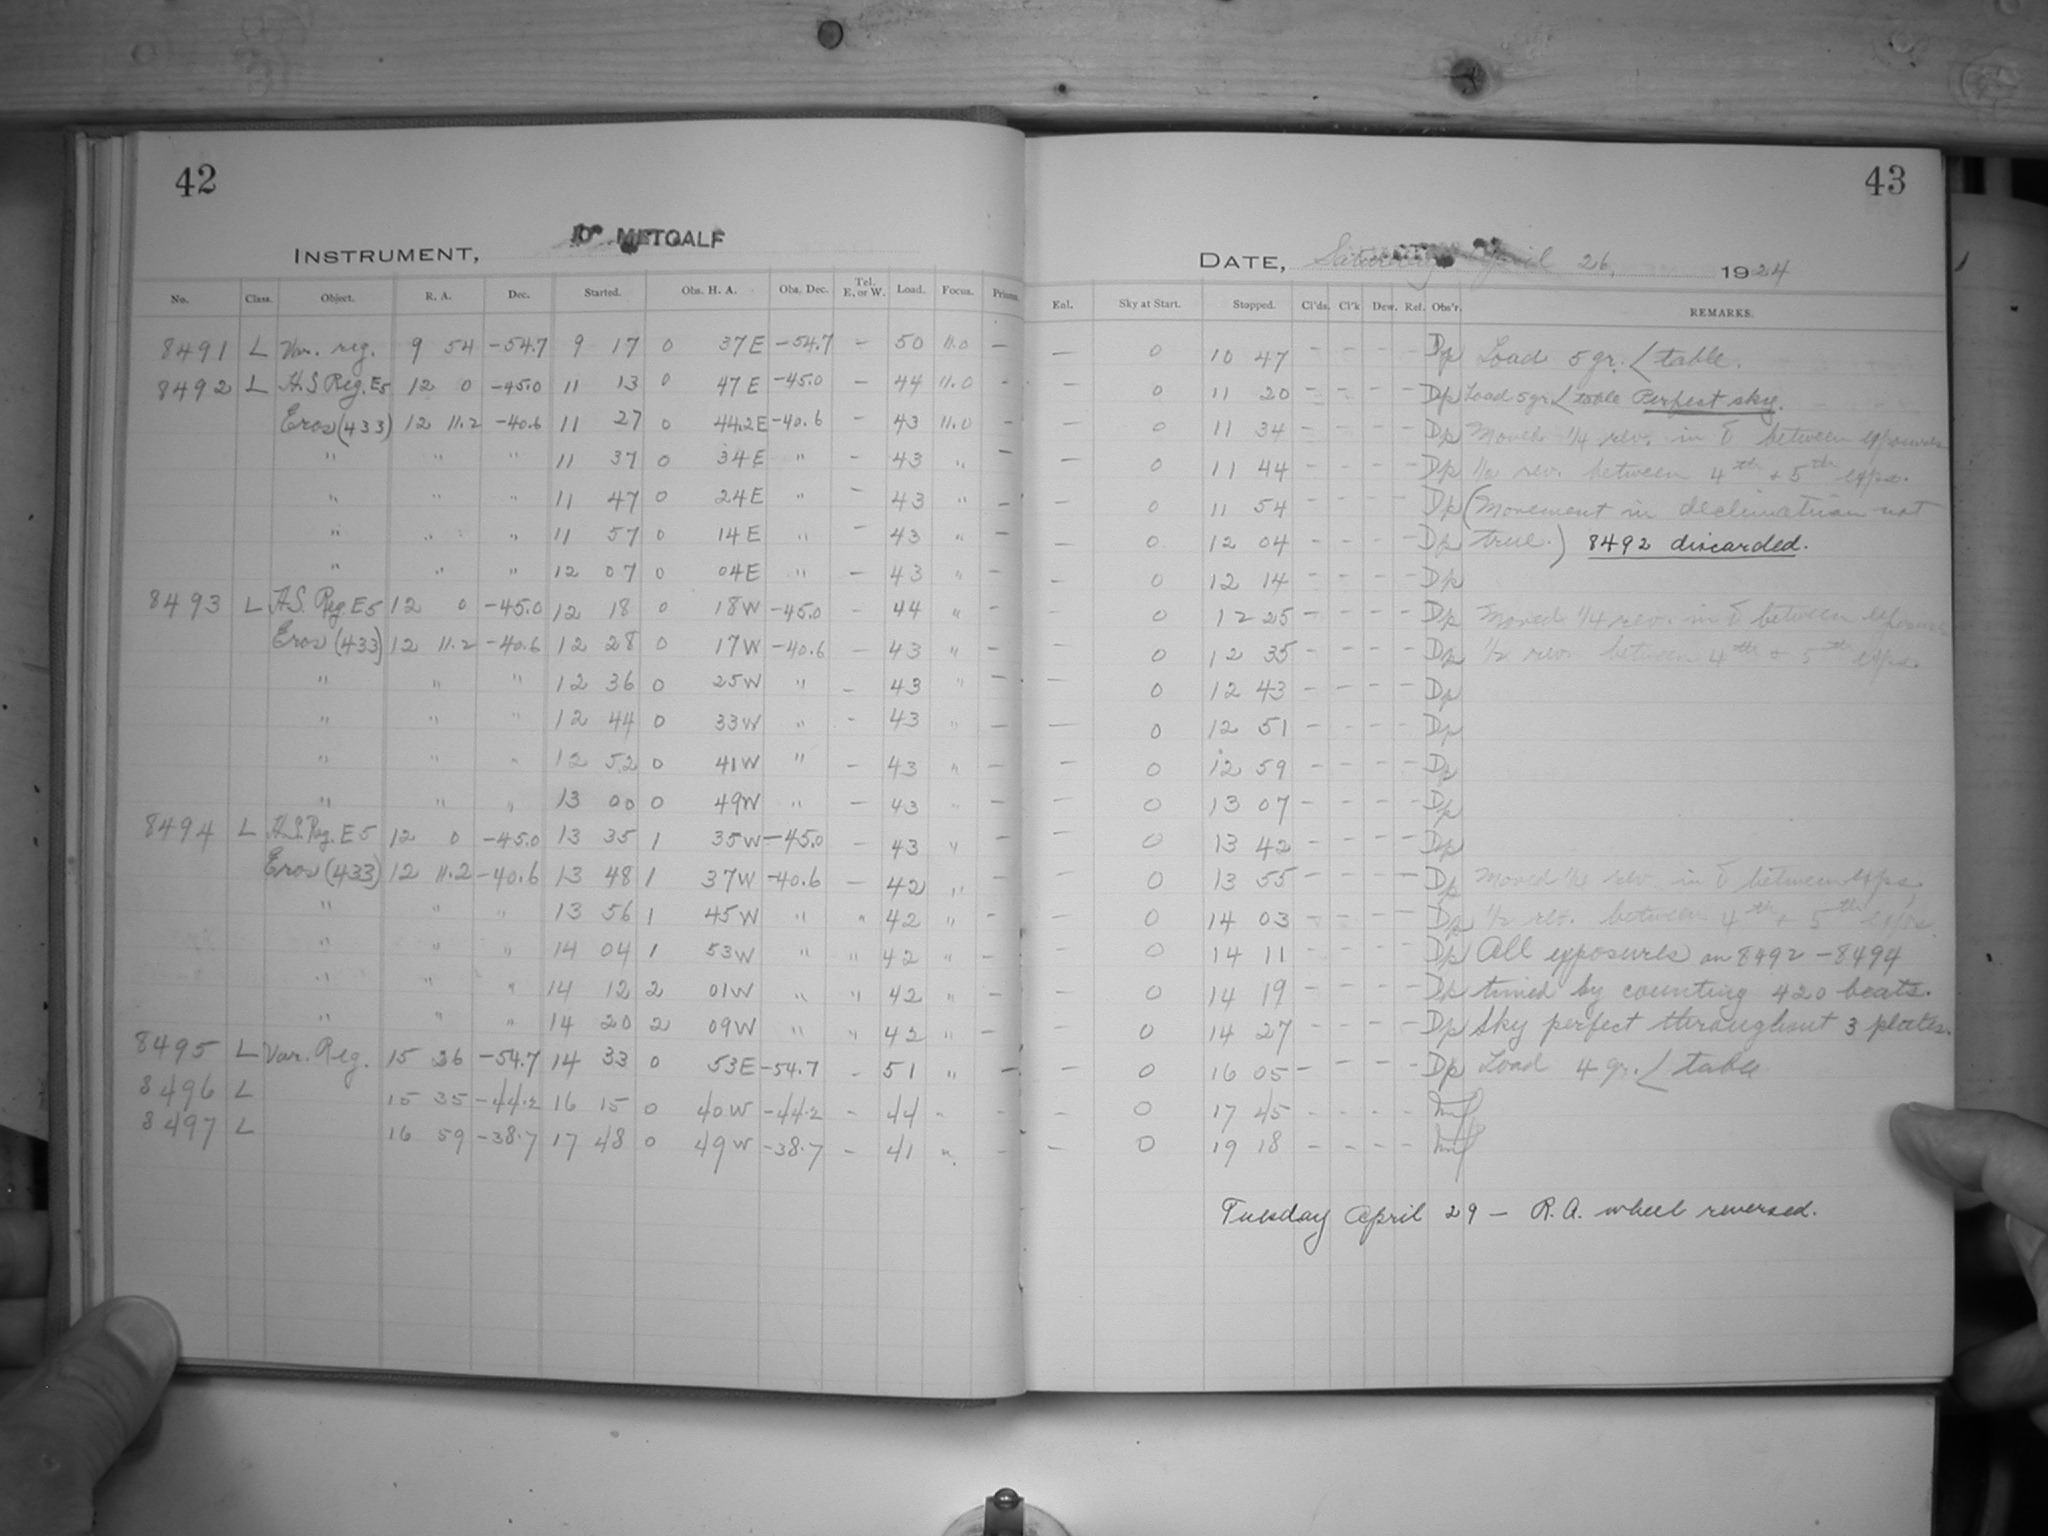 42
INSTRUMENT, 10" METCALF
No. Class. Object. R. A. Dec. Started. Obs. H. A. Obs. Dec. Tel. E. or W. Load. Focus. Prisms.
8491 L Var. reg. 9 54 -54.7 9 17 0 37E -54.7 - 50 11.0 -
8492 L H.S Reg. E5 12 0 -45.0 11 13 0 47E -45.0 - 44 11.0 -
Eros (433) 12 11.2 -40.6 11 27 0 44.2E -40.6 - 43 11.0 -
" " " 11 37 0 34E " - 43 " -
" " " 11 47 0 24E " - 43 " -
" " " 11 57 0 14E " - 43 " -
" " " 12 07 0 04E " - 43 " -
8493 L H.S. Reg. E5 12 0 -45.0 12 18 0 18W -45.0 - 44 " -
Eros (433) 12 11.2 -40.6 12 28 0 17W -40.6 - 43 " -
" " " 12 36 0 25W " - 43 " -
" " " 12 44 0 33W " - 43 " -
" " " 12 52 0 41W " - 43 " -
" " " 13 00 0 49W " - 43 " -
8494 L H.S. Reg. E5 12 0 -45.0 13 35 1 35W -45.0 - 43 " -
Eros (433) 12 11.2 -40.6 13 48 1 37W -40.6 - 42 " -
" " " 13 56 1 45W " " 42 " -
" " " 14 04 1 53W " " 42 " -
" " " 14 12 2 01W " " 42 " -
" " " 14 20 2 09W " " 42 " -
8495 L Var. Reg. 15 26 -54.7 14 33 0 53E -54.7 - 51 " -
8496 L 15 35 -44.2 16 15 0 40W -44.2 - 44 " -
8497 L 16 59 -38.7 17 48 0 49W -38.7 - 41 " -
43
DATE, Saturday April 26, 1924
Enl. Sky at Start. Stopped. Cl'ds. Cl'k Dew. Ref. Obs'r. REMARKS.
- 0 10 47 - - - - Dp Load 5 gr. < table.
- 0 11 20 - - - - Dp Load 5gr < table Perfect sky.
- 0 11 34 - - - - Dp Moved 1/4 rev. in δ between exposures
- 0 11 44 - - - - Dp 1/2 rev. between 4th + 5th exps.
- 0 11 54 - - - - Dp (Movement in declination not
- 0 12 04 - - - - Dp true.) 8492 discarded.
- 0 12 14 - - - - Dp
- 0 12 25 - - - - Dp Moved 1/4 rev. in δ between exposures
- 0 12 35 - - - - Dp 1/2 rev. between 4th + 5th exps.
- 0 12 43 - - - - Dp
- 0 12 51 - - - - Dp
- 0 12 59 - - - - Dp
- 0 13 07 - - - - Dp
- 0 13 42 - - - - Dp
- 0 13 55 - - - - Dp Moved rev. in δ between exps.
- 0 14 03 - - - - Dp 1/2 rev. between 4th + 5th expos.
- 0 14 11 - - - - Dp All exposures on 8492 - 8494
- 0 14 19 - - - - Dp timed by counting 420 beats.
- 0 14 27 - - - - Dp Sky perfect throughout 3 plates.
- 0 16 05 - - - - Dp Load 4 gr. < table
- 0 17 45 - - - -
- 0 19 18 - - - -
Tuesday April 29 - R.A. wheel reversed.